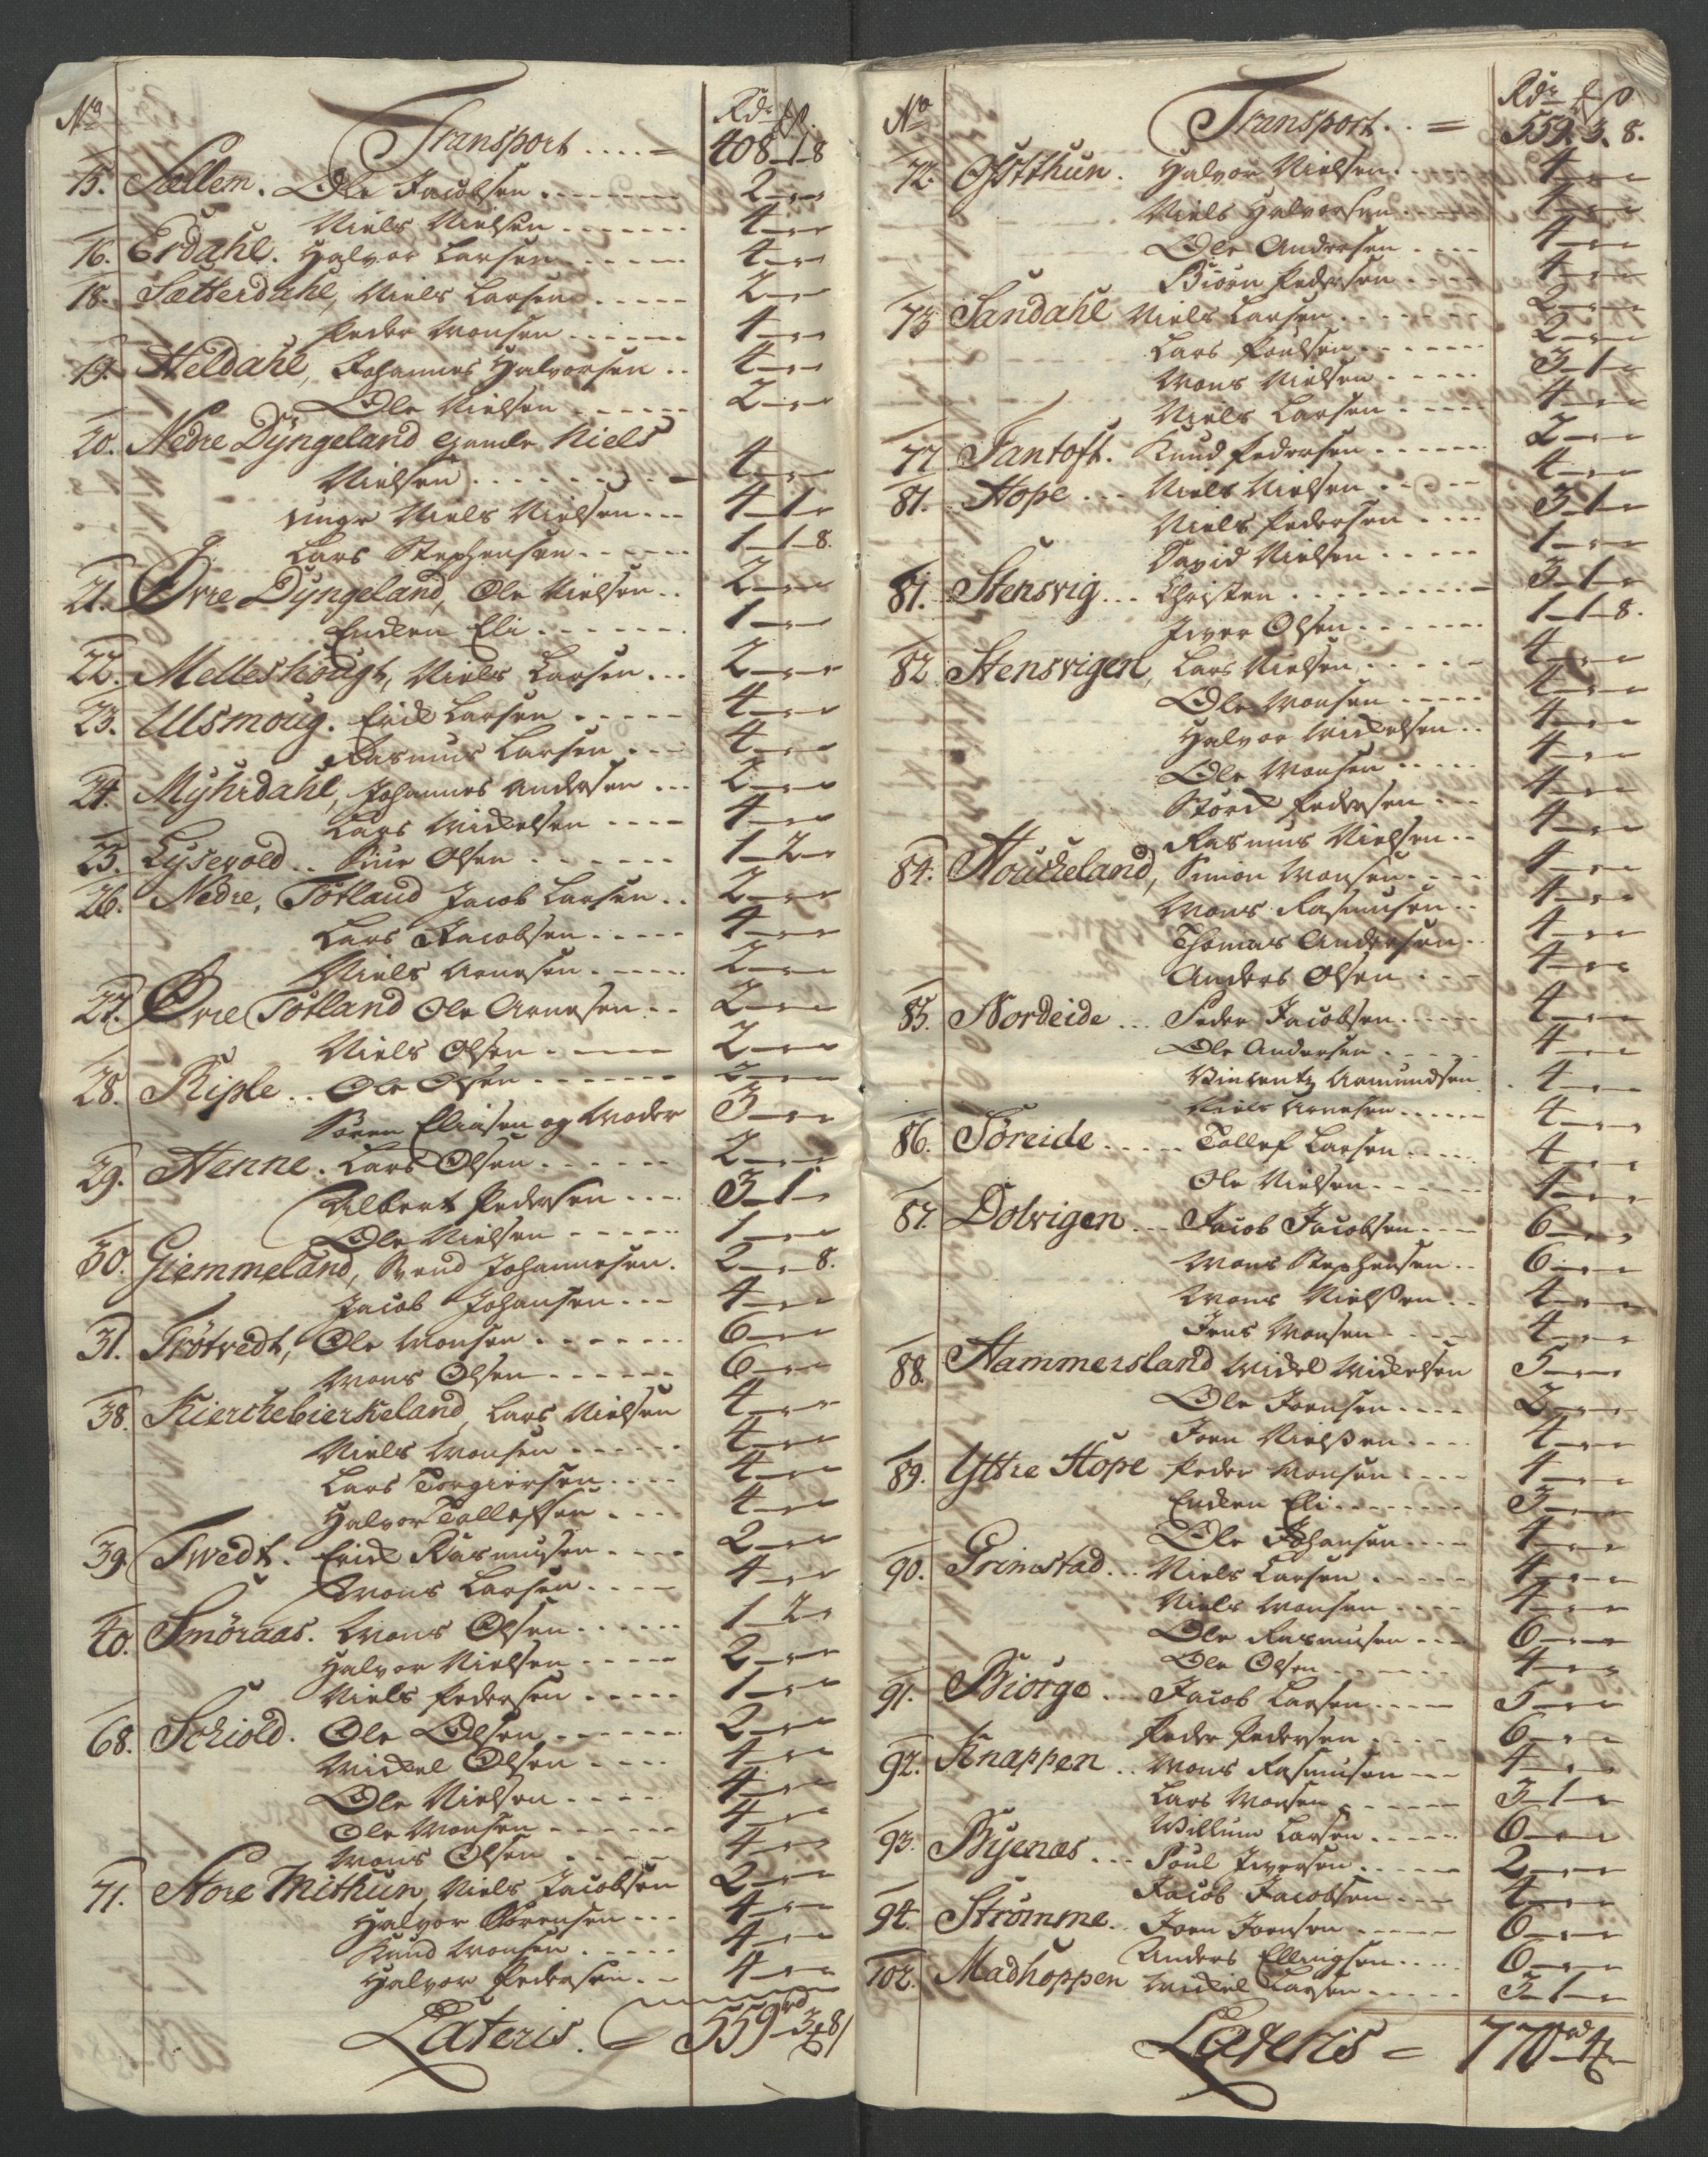 No Rdr ₰ ß.
Transport .... = 408-1-8
15. Sællem. Ole Jacobsen ....... 2-"-"
Niels Nielsen ....... 4-"-"
16. Erdahl. Halvor Larsen ...... 4-"-"
18. Sætterdahl, Niels Larsen ..... 2-"-"
Peder Monsen ...... 4-"-"
19. Heldahl, Johannes Halvorsen .. 4-"-"
Ole Nielsen ...... 2-"-"
20. Nedre Dÿngeland gamle Niels
Nielsen ........ 4-"-"
unge Niels Nielsen ... 4-1-"
Lars Stephensen ..... 1-1-8.
21. Øvre Dÿngeland, Ole Nielsen .. 2-"-"
Enken Eli ...... 1-"-"
22. Melleshougt, Niels Larsen ... 2-"-"
23. Ulsmoug. Erick Larsen ..... 4-"-"
Rasmus Larsen ... 4-"-"
24. Mÿhrdahl, Johannes Andersen ... 2-"-"
Lars Mickelsen .... 4-"-"
25. Lysevold .. Siur Olsen ...... 1-2-"
26. Nedre, Totland Jacob Larsen .. 2-"-"
Lars Jacobsen ..... 4-"-"
Niels Arnesen ..... 2-"-"
27. Øvre Totland Ole Arnesen .. 2-"-"
Niels Olsen ..... 2-"-"
28. Riple .. Ole Olsen ...... 2-"-"
Sören Eliasen og Moder 3-"-"
29. Henne. Lars Olsen ...... 2-"-"
Albert Pedersen .... 3-1-"
Ole Nielsen ..... 1-"-"
30. Giemmeland, Svend Johannesen. 2-"-8.
Jacob Johansen ... 4-"-"
31. Trötvedt, Ole Monsen ....... 6-"-"
Mons Olsen ...... 6-"-"
38. Kierchebierkeland, Lars Nielsen 4-"-"
Niels Monsen ...... 4-"-"
Lars Torgiersen .... 4-"-"
Halvor Tollefsen ... 4-"-"
39. Twedt. Erick Rasmusen .... 2-"-"
Mons Larsen .... 4-"-"
40. Smöraas. Mons Olsen ...... 1-2-"
Halvor Nielsen .... 2-"-"
Niels Pedersen ..... 1-"-"
68. Schiold. Ole Olsen ...... 2-"-"
Mickel Olsen .... 4-"-"
Ole Nielsen .... 4-"-"
Ole Monsen ...... 4-"-"
Mons Olsen ..... 4-"-"
71. Store Mithun, Niels Jacobsen 2-"-"
Halvor Sörensen ... 4-"-"
Knud Monsen ..... 4-"-"
Halvor Pedersen .. 4-"-"
Lateris. = 559rd-3-8
No Rdr ₰ ß
Transport .. = 559. 3. 8.
72. Ostthun. Halvor Nielsen ..... 4-"-"
Niels Halvorsen .... 4-"-"
Ole Andersen .... 4-"-"
Biörn Pedersen .... 4-"-"
73. Sandahl Niels Larsen ....... 2-"-"
Lars Poulsen ...... 2-"-"
Mons Nielsen ..... 3-1-"
Niels Larsen ..... 4-"-"
77. Fantoft. Knud Pedersen ...... 2-"-"
81. Hope ... Niels Nielsen ..... 4-"-"
Niels Pedersen .... 3-1-"
David Nielsen ..... 1-"-"
81. Stensvig ... Christen ......... 3-1-"
Iver Olsen ...... 1-1-8.
82. Stensvigen, Lars Nielsen ..... 4-"-"
Ole Monsen ..... 4-"-"
Halvor Mickelsen .. 4-"-"
Ole Monsen ..... 4-"-"
Störck Pedersen ... 4-"-"
Rasmus Nielsen .. 4-"-"
84. Houckeland, Simon Monsen .... 4-"-"
Mons Rasmusen .. 4-"-"
Thomas Andersen . 4-"-"
Anders Olsen ... 4-"-"
85. Nordeide ... Peder Jacobsen ..... 4-"-"
Ole Andersen ..... 4-"-"
Vincentz Amundsen . 4-"-"
Niels Arnesen ..... 4-"-"
86. Söreide ..... Tollef Larsen ..... 4-"-"
Ole Nielsen ..... 4-"-"
87. Dolvigen ... Jacob Jacobsen ... 6-"-"
Mons Stephensen .. 6-"-"
Mons Nielsen .. 4-"-"
Jens Monsen .... 4-"-"
88. Hammersland Mickel Mickelsen 5-"-"
Ole Joensen .... 2-"-"
Joen Nielsen .... 4-"-"
89. Ÿttre Hope Peder Monsen .... 4-"-"
Encken Eli ....... 3-"-"
Ole Johansen .... 4-"-"
90. Grimstad ... Niels Larsen ..... 4-"-"
Niels Monsen .... 4-"-"
Ole Rasmusen ... 6-"-"
Ole Olsen ...... 4-"-"
91. Biorge ... Jacob Larsen .... 5-"-"
Peder Pedersen .... 6-"-"
92. Knappen .. Mons Rasmusen ... 4-"-"
Lars Monsen ...... 3-1-"
93. Bÿenæs ... Willum Larsen ..... 6-"-"
Poul Iversen ..... 2-"-"
Jacob Jacobsen ... 4-"-"
94. Strömme .. Joen Joensen ..... 6-"-"
Anders Ellingsen .... 6-"-"
102. Madhoppen Mickel Larsen ..... 3-1-"
Lateris = 770rd-4-"